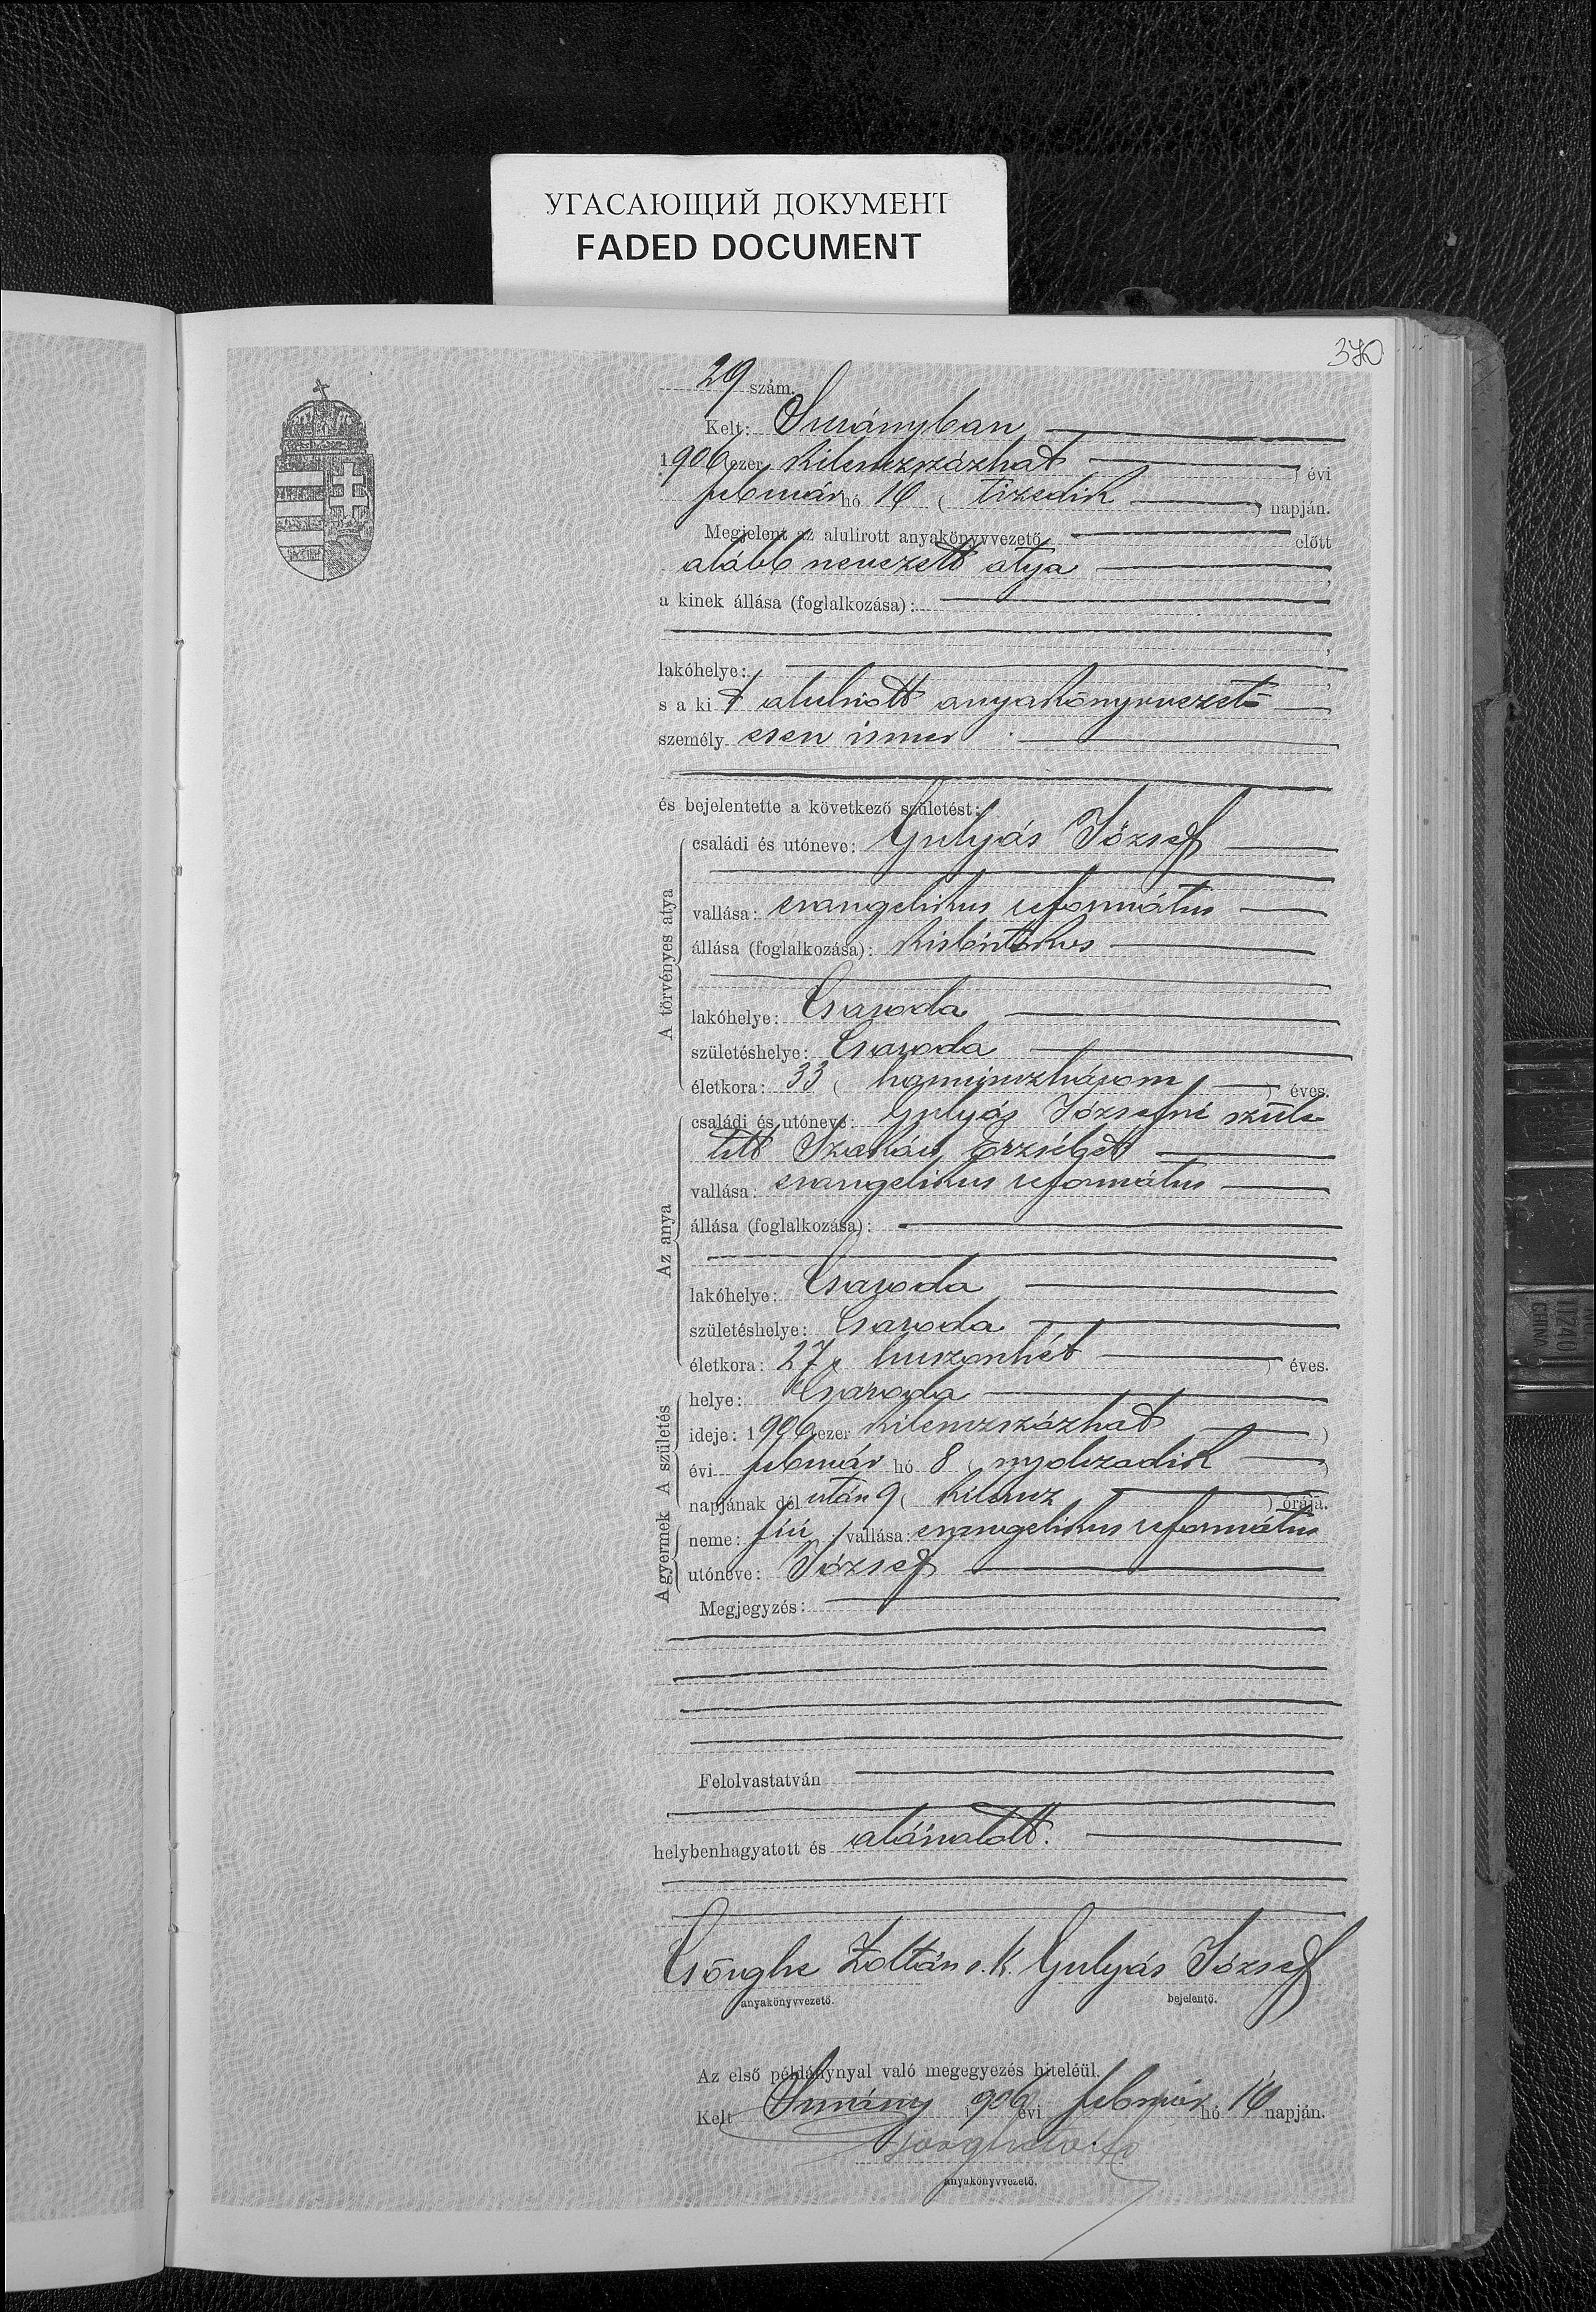 УГАСАЮЩИЙ ДОКУМЕНТ
FADED DOCUMENT
370
29 szám.
Kelt: Surányban
1906 ezer kilenczszázhat ) évi
február hó 10 ( tizedik ) napján.
Megjelent az alulirott anyakönyvvezető előtt
alább nevezett atya ,
a kinek állása (foglalkozása):
,
lakóhelye: ,
s a kit alulirott anyakönyvvezető
személyesen ismer
és bejelentette a következő születést:
A törvényes atya
családi és utóneve: Gulyás József
vallása: evangelikus református
állása (foglalkozása): kisbirtokos
lakóhelye: Csaroda
születéshelye: Csaroda
életkora: 33 ( harminczhárom ) éves.
Az anya
családi és utóneve: Gulyás Józsefné szüle
tett Szakács Erzsébet
vallása: evangelikus református
állása (foglalkozása):
lakóhelye: Csaroda
születéshelye: Csaroda
életkora: 27 ( huszonhét ) éves.
A születés
helye: Csaroda
ideje: 1906 ezer kilenczszázhat )
évi február hó 8 ( nyolczadik )
napjának dél után 9 ( kilencz ) órája.
A gyermek
neme: fiú vallása: evangelikus református
utóneve: József
Megjegyzés:
Felolvastatván
helybenhagyatott és aláiratott.
Csönghe Zoltán s.k. Gulyás József
anyakönyvvezető. bejelentő.
Az első példánynyal való megegyezés hiteléül.
Kelt Surány 1906 évi február hó 10 napján.
anyakönyvvezető.